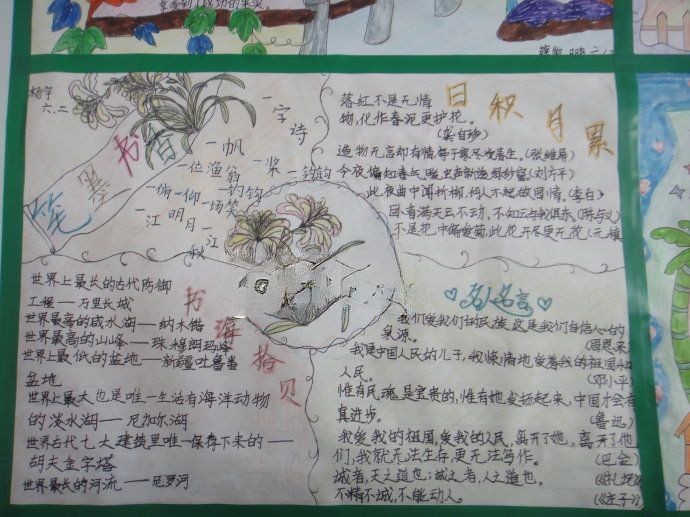 享受到了成功的果实。
杨宇
六.二
笔墨书香
一字诗
一帆一桨一渔舟
一位渔翁一钓钩
一俯一仰一场笑
一江明月一江秋
日积月累
落红不是无情
物,化作春泥更护花。
(龚自珍)
造物无言却有情,每于寒尽觉春生。(张维屏)
今夜偏知春气暖,虫声新透绿纱窗(刘方平)
此夜曲中闻折柳,何人不起故园情。(李白)
卧看满天云不动,不知云与我俱东。(陈与义)
不是花中偏爱菊,此花开尽更无花(元稹
书海拾贝
世界上最长的古代防御
工程——万里长城
世界最高的咸水湖——纳木错
世界最高的山峰——珠穆朗玛峰
世界上最低的盆地——新疆吐鲁番
盆地
世界上最大也是唯一生活有海洋动物
的淡水湖——尼加尔湖
世界古代七大建筑里唯一保存下来的——
胡夫金字塔
世界最长的河流——尼罗河
名人名言
我们爱我们的民族,这是我们自信心的
泉源。
(周恩来
我是中国人民的儿子,我深情地爱着我的祖国和
人民。
(邓小平)
惟有民魂是宝贵的,惟有他发扬起来,中国才会有
真进步。
(鲁迅)
我爱我的祖国,爱我的人民,离开了她,离开了他
们,我就无法生存,更无法写作。
(巴金)
诚者,天之道也;诚之者,人之道也。
《礼记》
不精不诚,不能动人。
《庄子》